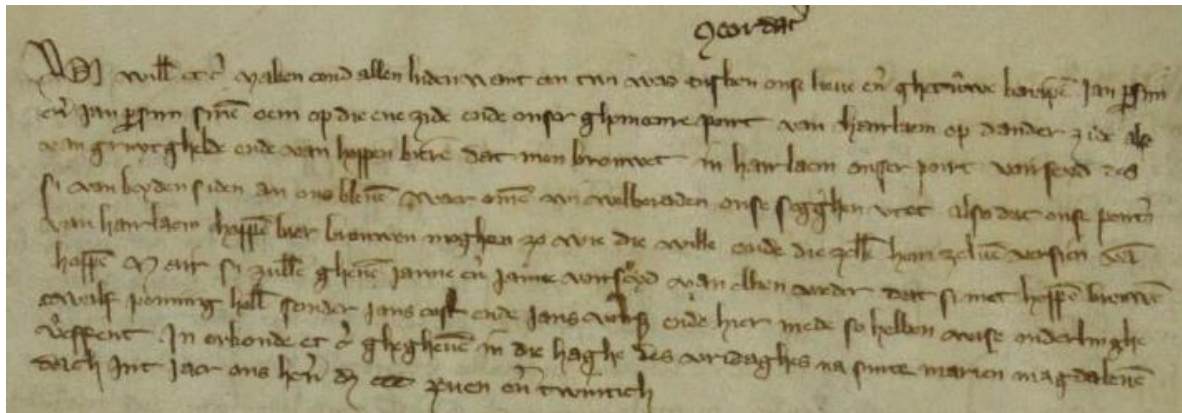 Wi will et c̄ maken cond allen luden want en twi was tusken onse lieve en̄ ghetruwe
en̄ Jan sinē oem op die ene zide ende onser ghemeenre port van hairlaem op dander zide alse
van gruytghelde ende van hoppen biere dat men brouwet in hairlaem onser poirt
si van beyden siden an ons blevē waer omē wi welberaden onse segghen utet also dat onse
van hairlaem hoppē bier brouwen moghen zo wie die wille ende die hem zelvē versien vā
hoppē Ment si zullē ghevē janne en̄ janne van elken veder dat si met hoppē brouwē
twalef penning holl sonder jans cost ende jans ende hier mede so hebben wise onderlinghe
In orkonde et c̄ gheghevē in die haghe des vridaghes na sinte marien magdalenē
dach Int jaer ons herē en̄ twintich